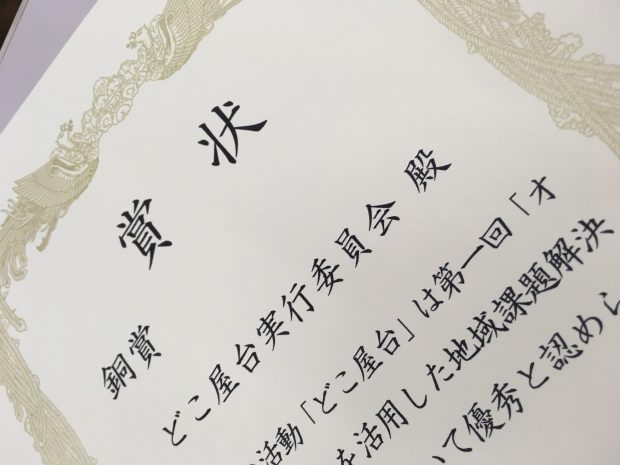 賞状
銅賞
どこ屋台実行委員会 殿
活動「どこ屋台」は第一回「オ
を活用した地域課題解決
いて優秀と認めら